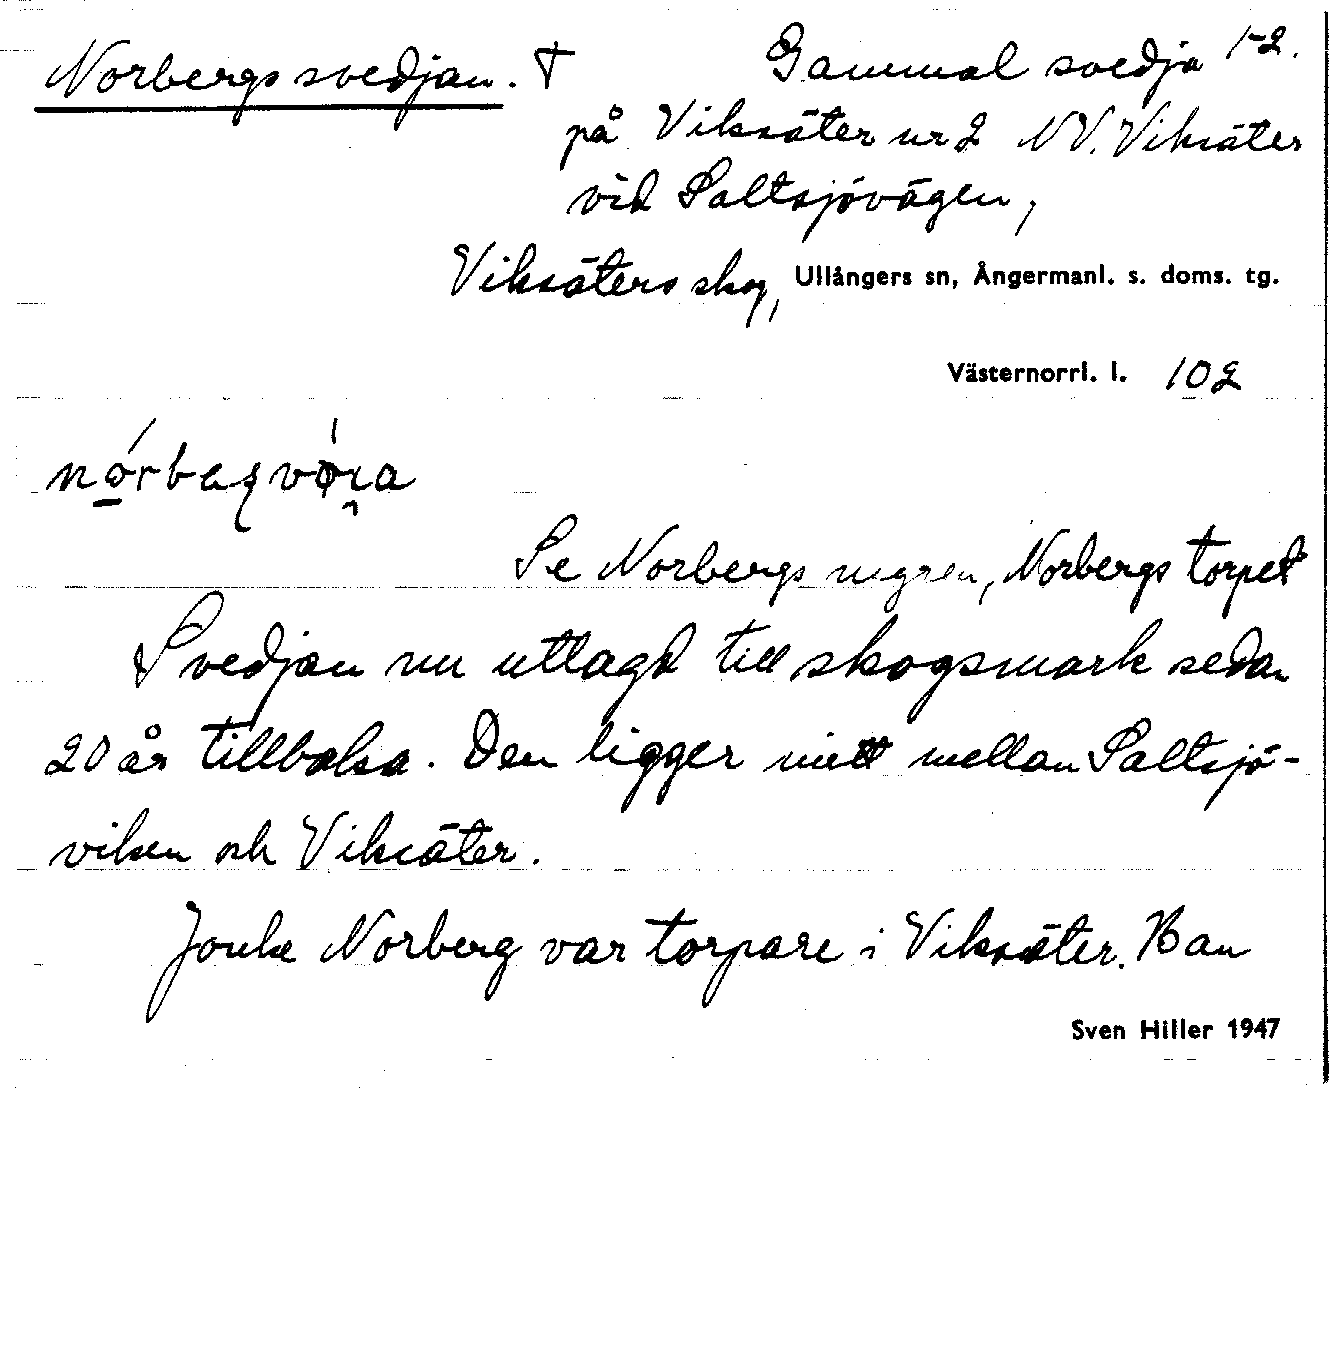 Norbergssvedjan. † Gammal svedja 1-2.
på Viksäter nr 2 NV. Viksäter
vid Saltsjövägen,
Viksäters skog, Ullångers sn, Ångermanl. s. doms. tg.
Västernorrl. l. 102
Se Norbergs Norbergs torpet
Svedjan nu utlagd till skogsmark sedan
20 år tillbaka. Den ligger mitt mellan Saltsjö-
viken och Viksäter.
Norberg var torpare i Viksäter. Han
Sven Hiller 1947